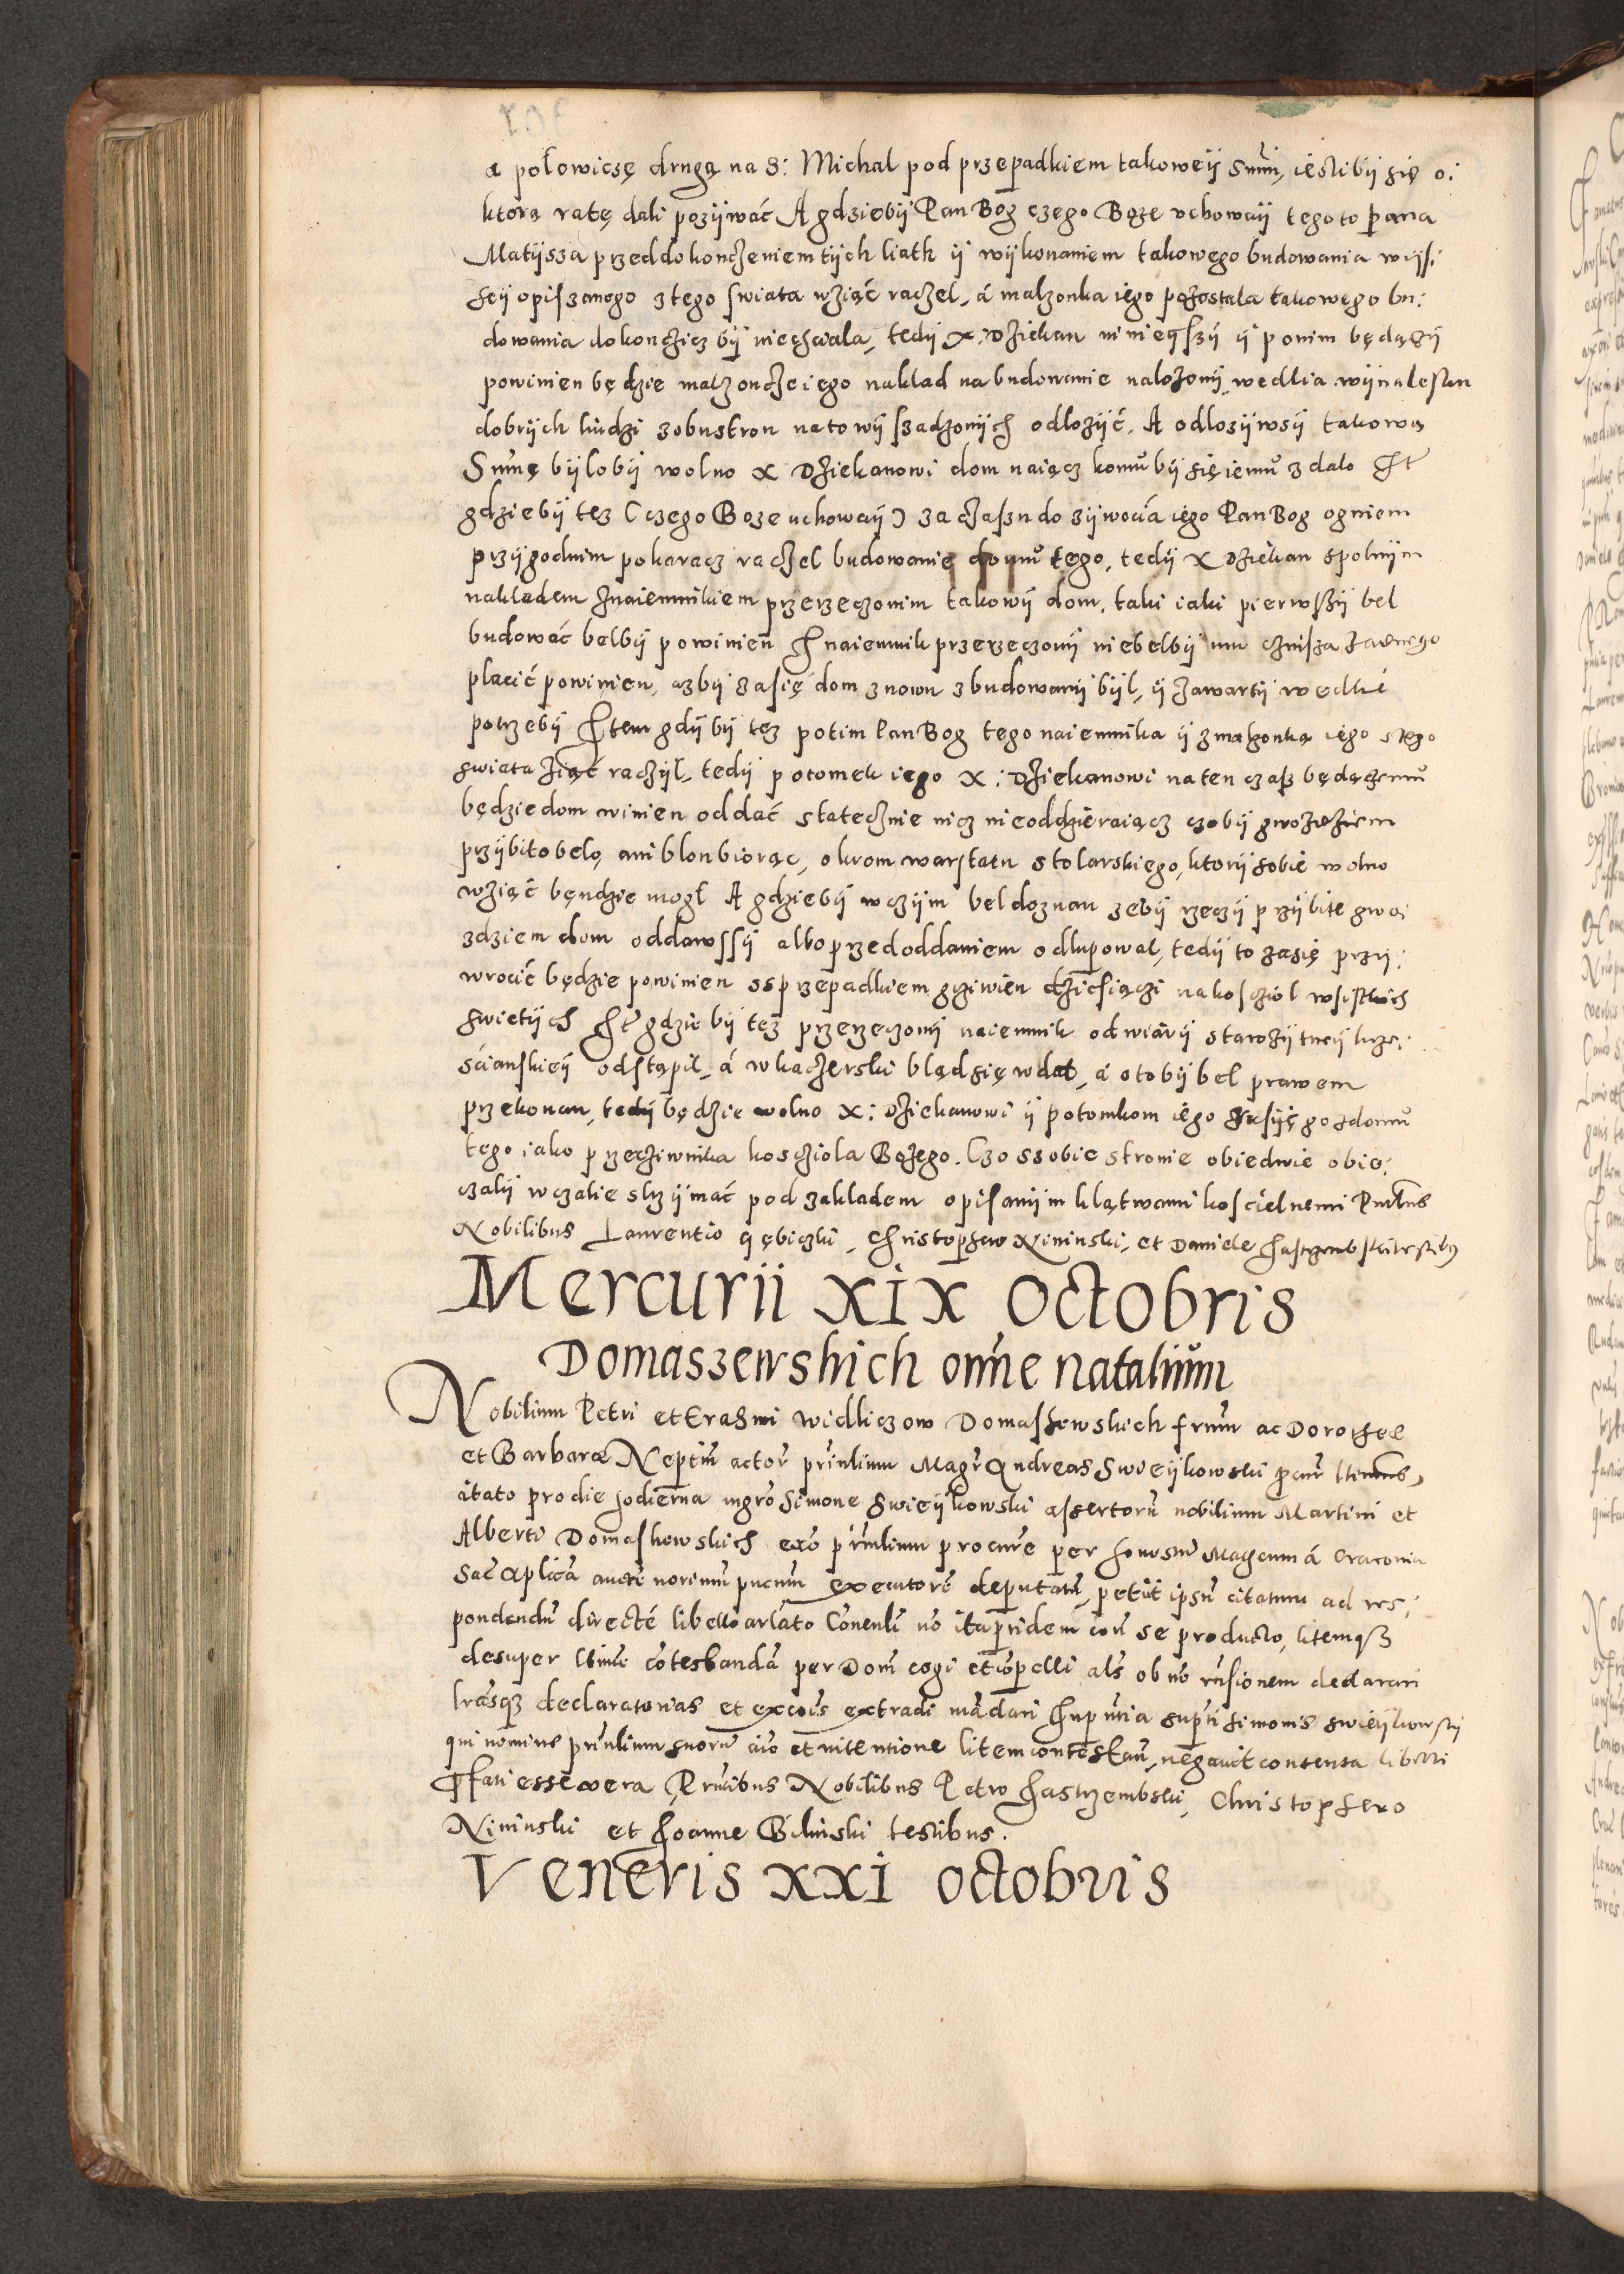 a połowiczę drugą na S: Michal pod przepadkiem takoweÿ Sum̃i, iesliby się o:
ktorą ratę dali pozÿwać A gdziebÿ Pan Bog czego Boze uchowaÿ tego to pana
Matÿsza przed dokonczeniem tÿch liath ÿ wÿkonaniem takowego budowania wÿs:
seÿ opiszanego z tego swiata wziąć raczel, á malzonka iego pozostala takowego bu:
dowania dokonczicz bÿ niechciala, tedÿ X. Dziekan ninieÿszÿ ÿ po nim będączÿ
powinien będzie malzoncze iego naklad na budowanie nalozonÿ wedlia wÿnalesku
dobrÿch ludzi z obu stron na to wÿszadzonÿch odlozÿć. A odlozÿwsÿ takową
Sum̃ę bÿlobÿ wolno X Dziekanowi dom naiącz komu bÿ się iemu zdalo It
gdziebÿ tez (czego Boze uchowaÿ) za czaszu do zÿwocia iego Pan Bog ogniem
przÿgodnim pokaracz raczel budowanie domu tego, tedÿ X Dziekan spolnÿm
nakladem z naiemnikiem przerzeczonim takowÿ dom, taki iaki pierwszÿ bel
budować belbÿ powinien I naiemnik przerzeczonÿ niebelbÿ mu czinsza zadnego
placić powinien, azbÿ zasię dom znowu zbudowanÿ bÿl, ÿ zawartÿ wedlie
potrzebÿ Item gdÿ bÿ tez potim Pan Bog tego naiemnika ÿ z malzonką iego s tego
swiata ziąć raczÿl, tedÿ potomek iego X: Dziekanowi na ten czasz będączemu
będzie dom winien oddać statecznie nicz nie oddzieraiącz czobÿ gwozdziem
przÿbito belo, ani blon biorąc, okrom warstatu stolarskiego, ktorÿ sobie wolno
wziąć bendzie mogl A gdziebÿ w czÿm bel doznan zebÿ rzeczÿ przÿbite gwo:
zdziem dom oddawssÿ albo przed oddaniem odlupowal, tedÿ to zasię przÿ:
wrocić będzie powinien ss przepadkiem grziwien dziesiączi na kosciol wsistkich
swietÿch It gdzie bÿ tez przerzeczonÿ naiemnik od wiarÿ starozÿtneÿ krze:
scianskieÿ odstąpil, á w kaczerski bląd się wdal, á o to bÿ bel prawem
przekonan, tedÿ będzie wolno X: Dziekanowi ÿ potomkom iego go z domu
tego iako przecziwnika kosciola Bozego. Czo ss obie stronie obiedwie obie:
czalÿ w czalie strzÿmać pod zakladem opisanÿm klątwami koscielnemi Pn̄tbus
Nobilibus Laurentio Gębiczki, Christophero Nininski, et Daniele Jastrzembski testibus
Mercurii xix Octobris
Domaszewskich om̃e natalium
Nobilium Petri et Erasmi Widliczow Domaszewskich frum ac Dorothee
et Barbaræ Neptium actor princlium Magr Andreas Swieÿkowski
itato pro die hodierna mgro Simone Swieÿkowski assertorũ nobilium Martini et
Alberti Domaszewskich exo princlium procure per à Cracovia
Sac aplica auctẽ executorẽ deputatum, petiit ipsũ citatum ad res:
pondendũ directé libello arlato no cou se producto, litemqȝ
desuper contestandã per Dom̃ cogi et cõpelli als ob nõ rñsionem declarari
lrasqȝ declaratorias et extradi mãdari In pñtia supti Simonis Swieÿkowski
qui nomine princlium suorũ aio et intentione litem contestañ, negavit contenta libelli
Pfati esse vera, Pñtibus Nobilibus Petro Jastrzembski, Christophero
Nininski et Joanne Bilinski testibus.
Veneris xxi octobris